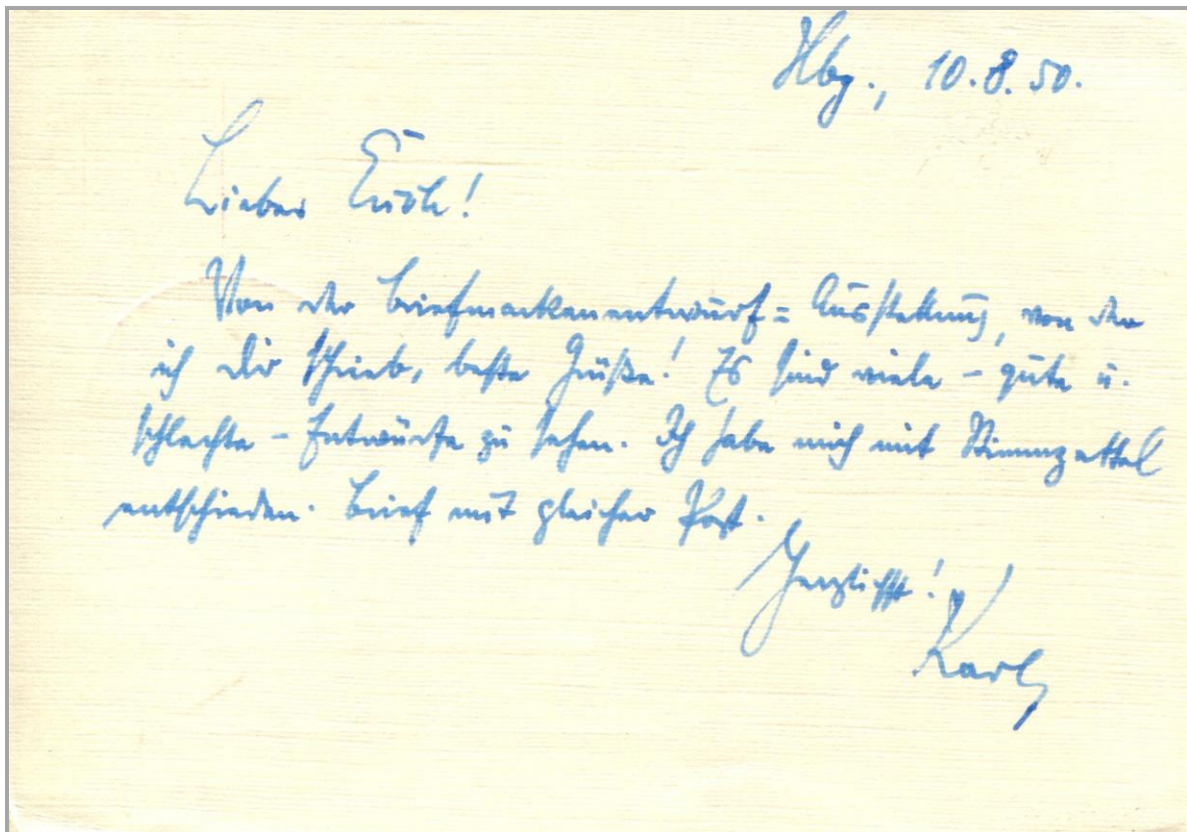 Hbg., 10.8.50.
Lieber
Von der Briefmarkenentwurf=Ausstellung, von der
ich Dir schrieb, beste Grüße! Es sind viele – gute u.
schlechte – Entwürfe zu sehen. Ich habe mich mit Stimmzettel
entschieden. Brief mit gleicher Post.
Herzlichst!
Karl